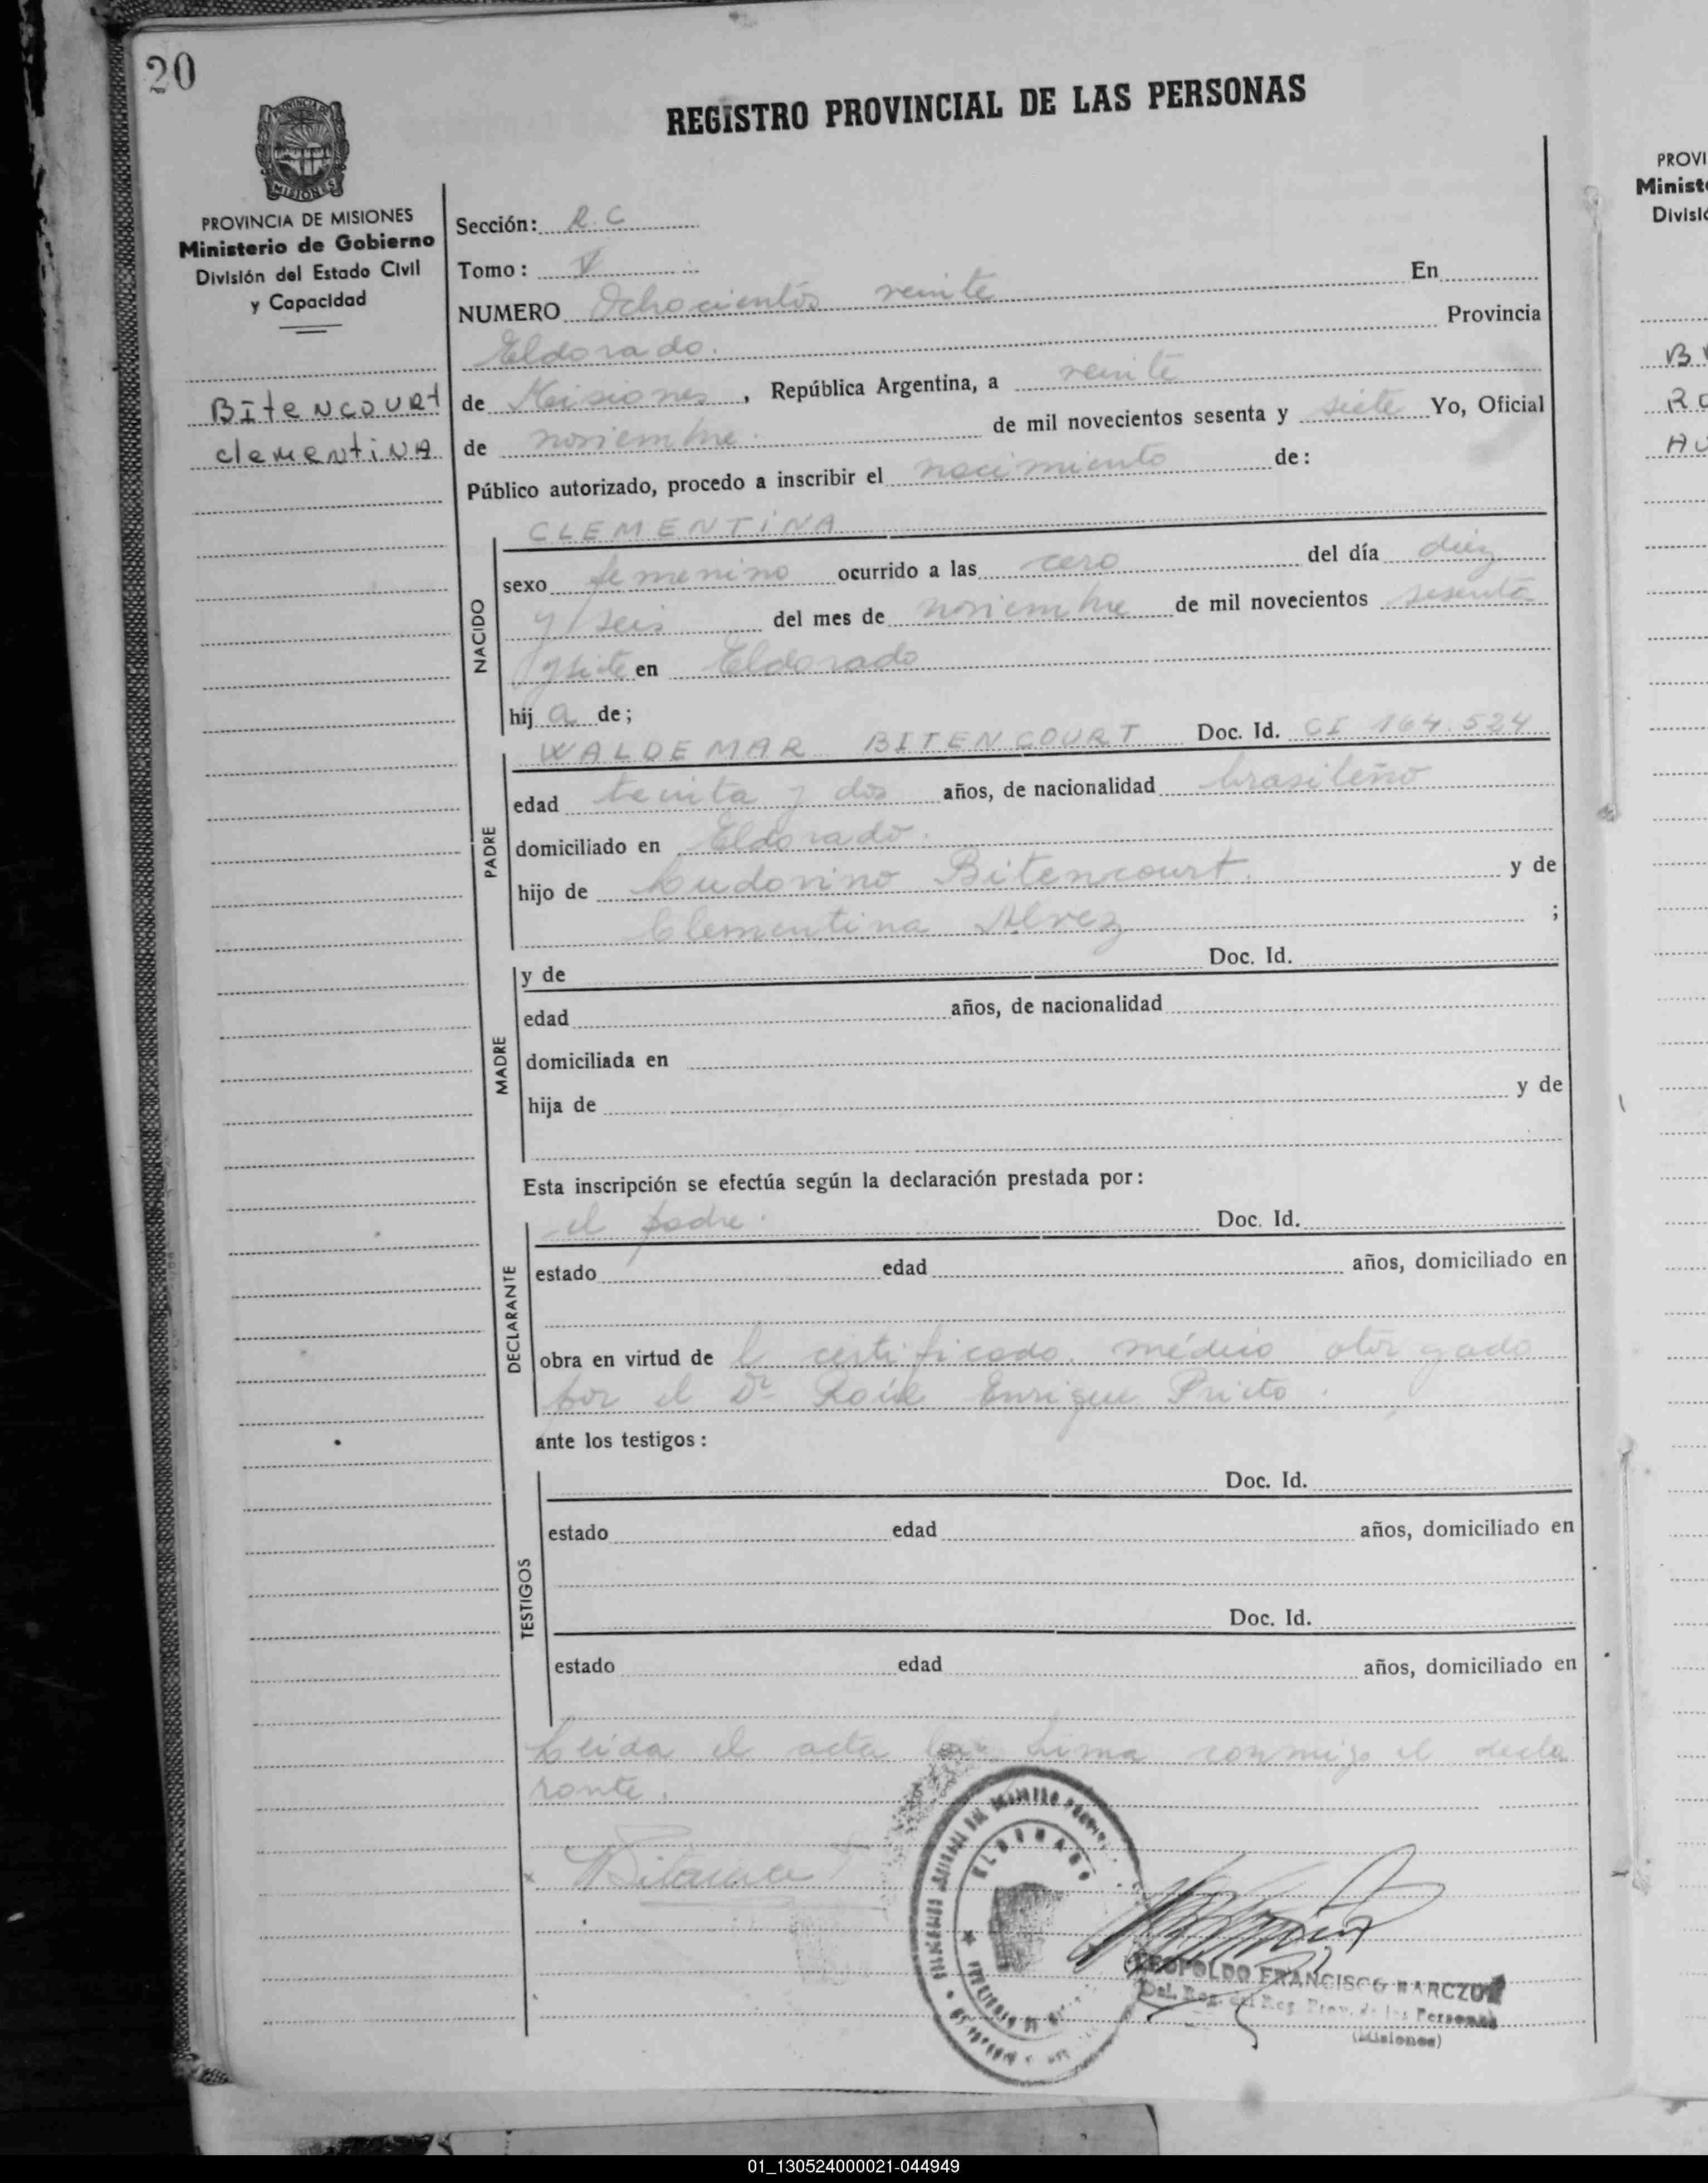 20
REGISTRO PROVINCIAL DE LAS PERSONAS
MISIONES
PROVINCIA DE MISIONES
Ministerio de Gobierno
División del Estado Civil
y Capacidad
Bitencourt
Clementina
Sección: R.C
Tomo: V
NUMERO Ochocientos veinte En
Eldorado. Provincia
de Misiones, República Argentina, a veinte
de noviembre. de mil novecientos sesenta y siete Yo, Oficial
Público autorizado, procedo a inscribir el nacimiento de:
NACIDO
CLEMENTINA
sexo femenino ocurrido a las cero del día diez
y seis del mes de noviembre de mil novecientos sesenta
y siete en Eldorado
hij a de;
PADRE
WALDEMAR BITENCOURT Doc. Id. CI 164.524
edad treinta y dos años, de nacionalidad brasileño
domiciliado en Eldorado.
hijo de Ludovino Bitencourt. y de
Clementina Alvez ;
MADRE
y de Doc. Id.
edad años, de nacionalidad
domiciliada en
hija de y de
Esta inscripción se efectúa según la declaración prestada por:
DECLARANTE
el padre. Doc. Id.
estado edad años, domiciliado en
obra en virtud de l certificado médico otorgado
por el Dr Raúl Enrique Prieto.
ante los testigos:
TESTIGOS
Doc. Id.
estado edad años, domiciliado en
Doc. Id.
estado edad años, domiciliado en
Leida el acta la firma conmigo el decla
rante.
ELDORADO
LEOPOLDO FRANCISCO BARCZUK
Del. Reg. del Reg. Prov. de las Personas
(Misiones)
PROVI
Ministe
Divisió
01_130524000021-044949